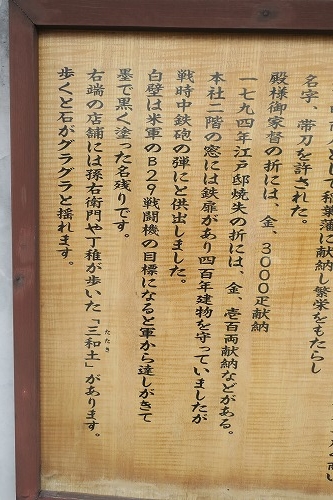 として稲葉藩に献納し繁栄をもたらし
名字、帯刀を許された。
殿様御家督の折には、金、3000疋献納
一七九四年江戸邸焼失の折には、金、壱百両献納などがある。
本社二階の窓には鉄扉があり四百年建物を守っていましたが
戦時中鉄砲の弾にと供出しました。
白壁は米軍のB29戦闘機の目標になると軍から達しがきて
墨で黒く塗った名残りです。
右端の店舗には孫右衛門や丁稚が歩いた「三和土」があります。
たたき
歩くと石がグラグラと揺れます。